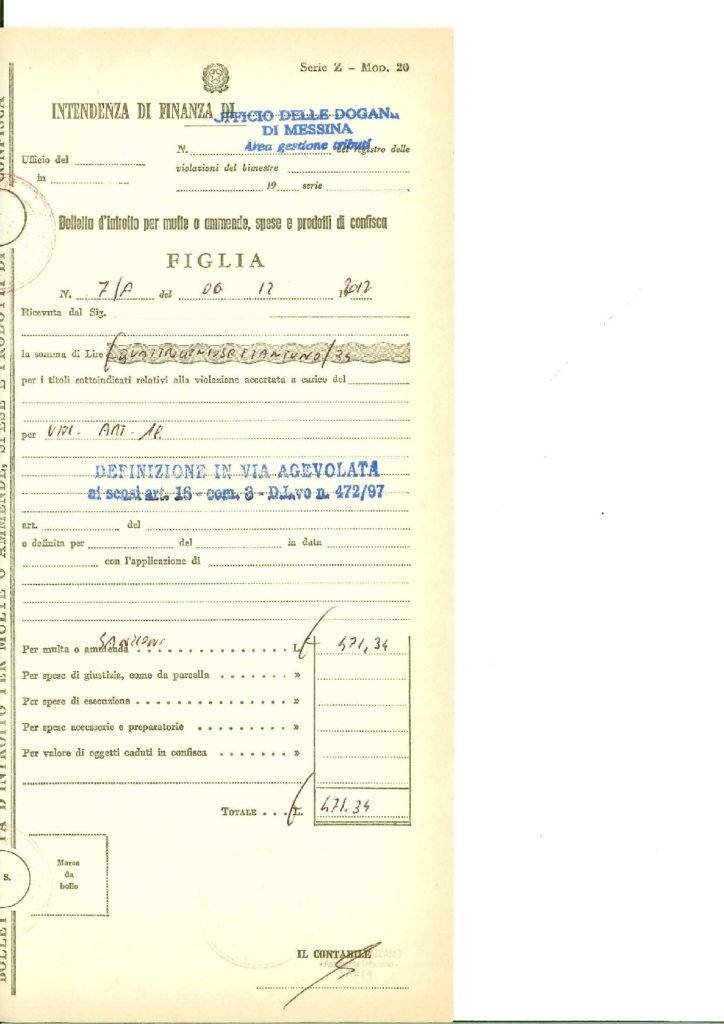 Serie Z - Mod. 20
INTENDENZA DI FINANZA DI
UFFICIO DELLE DOGANE
DI MESSINA
Area gestione tributi
N. del registro delle
Ufficio del
violazioni del bimestre
in
19 serie
Bolletta d'introito per multe o ammende, spese e prodotti di confisca
FIGLIA
N. 7/A del 06 12 2012
Ricevuta dal Sig.
la somma di Lire QUATTROCENTOSETTANTUNO/34
per i titoli sottoindicati relativi alla violazione accertata a carico del
per VIOL. ART.
DEFINIZIONE IN VIA AGEVOLATA
ai sensi art. 16 - com. 3 - D.L.vo n. 472/97
art. del
e definita per del in data
con l'applicazione di
SANZIONI
Per multa o ammenda L. 471,34
Per spese di giustizia, come da parcella »
Per spese di esecuzione »
Per spese accessorie e preparatorie »
Per valore di oggetti caduti in confisca »
TOTALE . . . L. 471.34
Marca
da
bollo
S.
IL CONTABILE